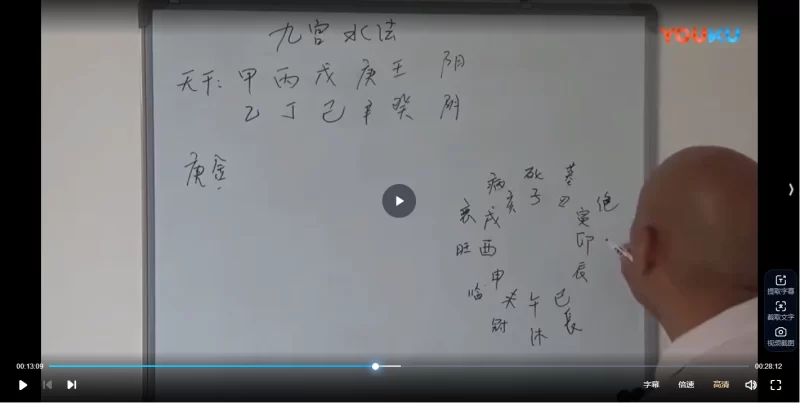 九宫水法
YOUKU
天干: 甲 丙 戊 庚 壬 阳
乙 丁 己 辛 癸 阴
庚金
病 死 墓 绝
衰 戌 亥 子 丑 寅
旺 酉 卯
临 申 未 午 巳 辰
冠 沐 长
提取字幕
截取文字
视频截图
00:13:09
00:28:12
字幕 倍速 高清